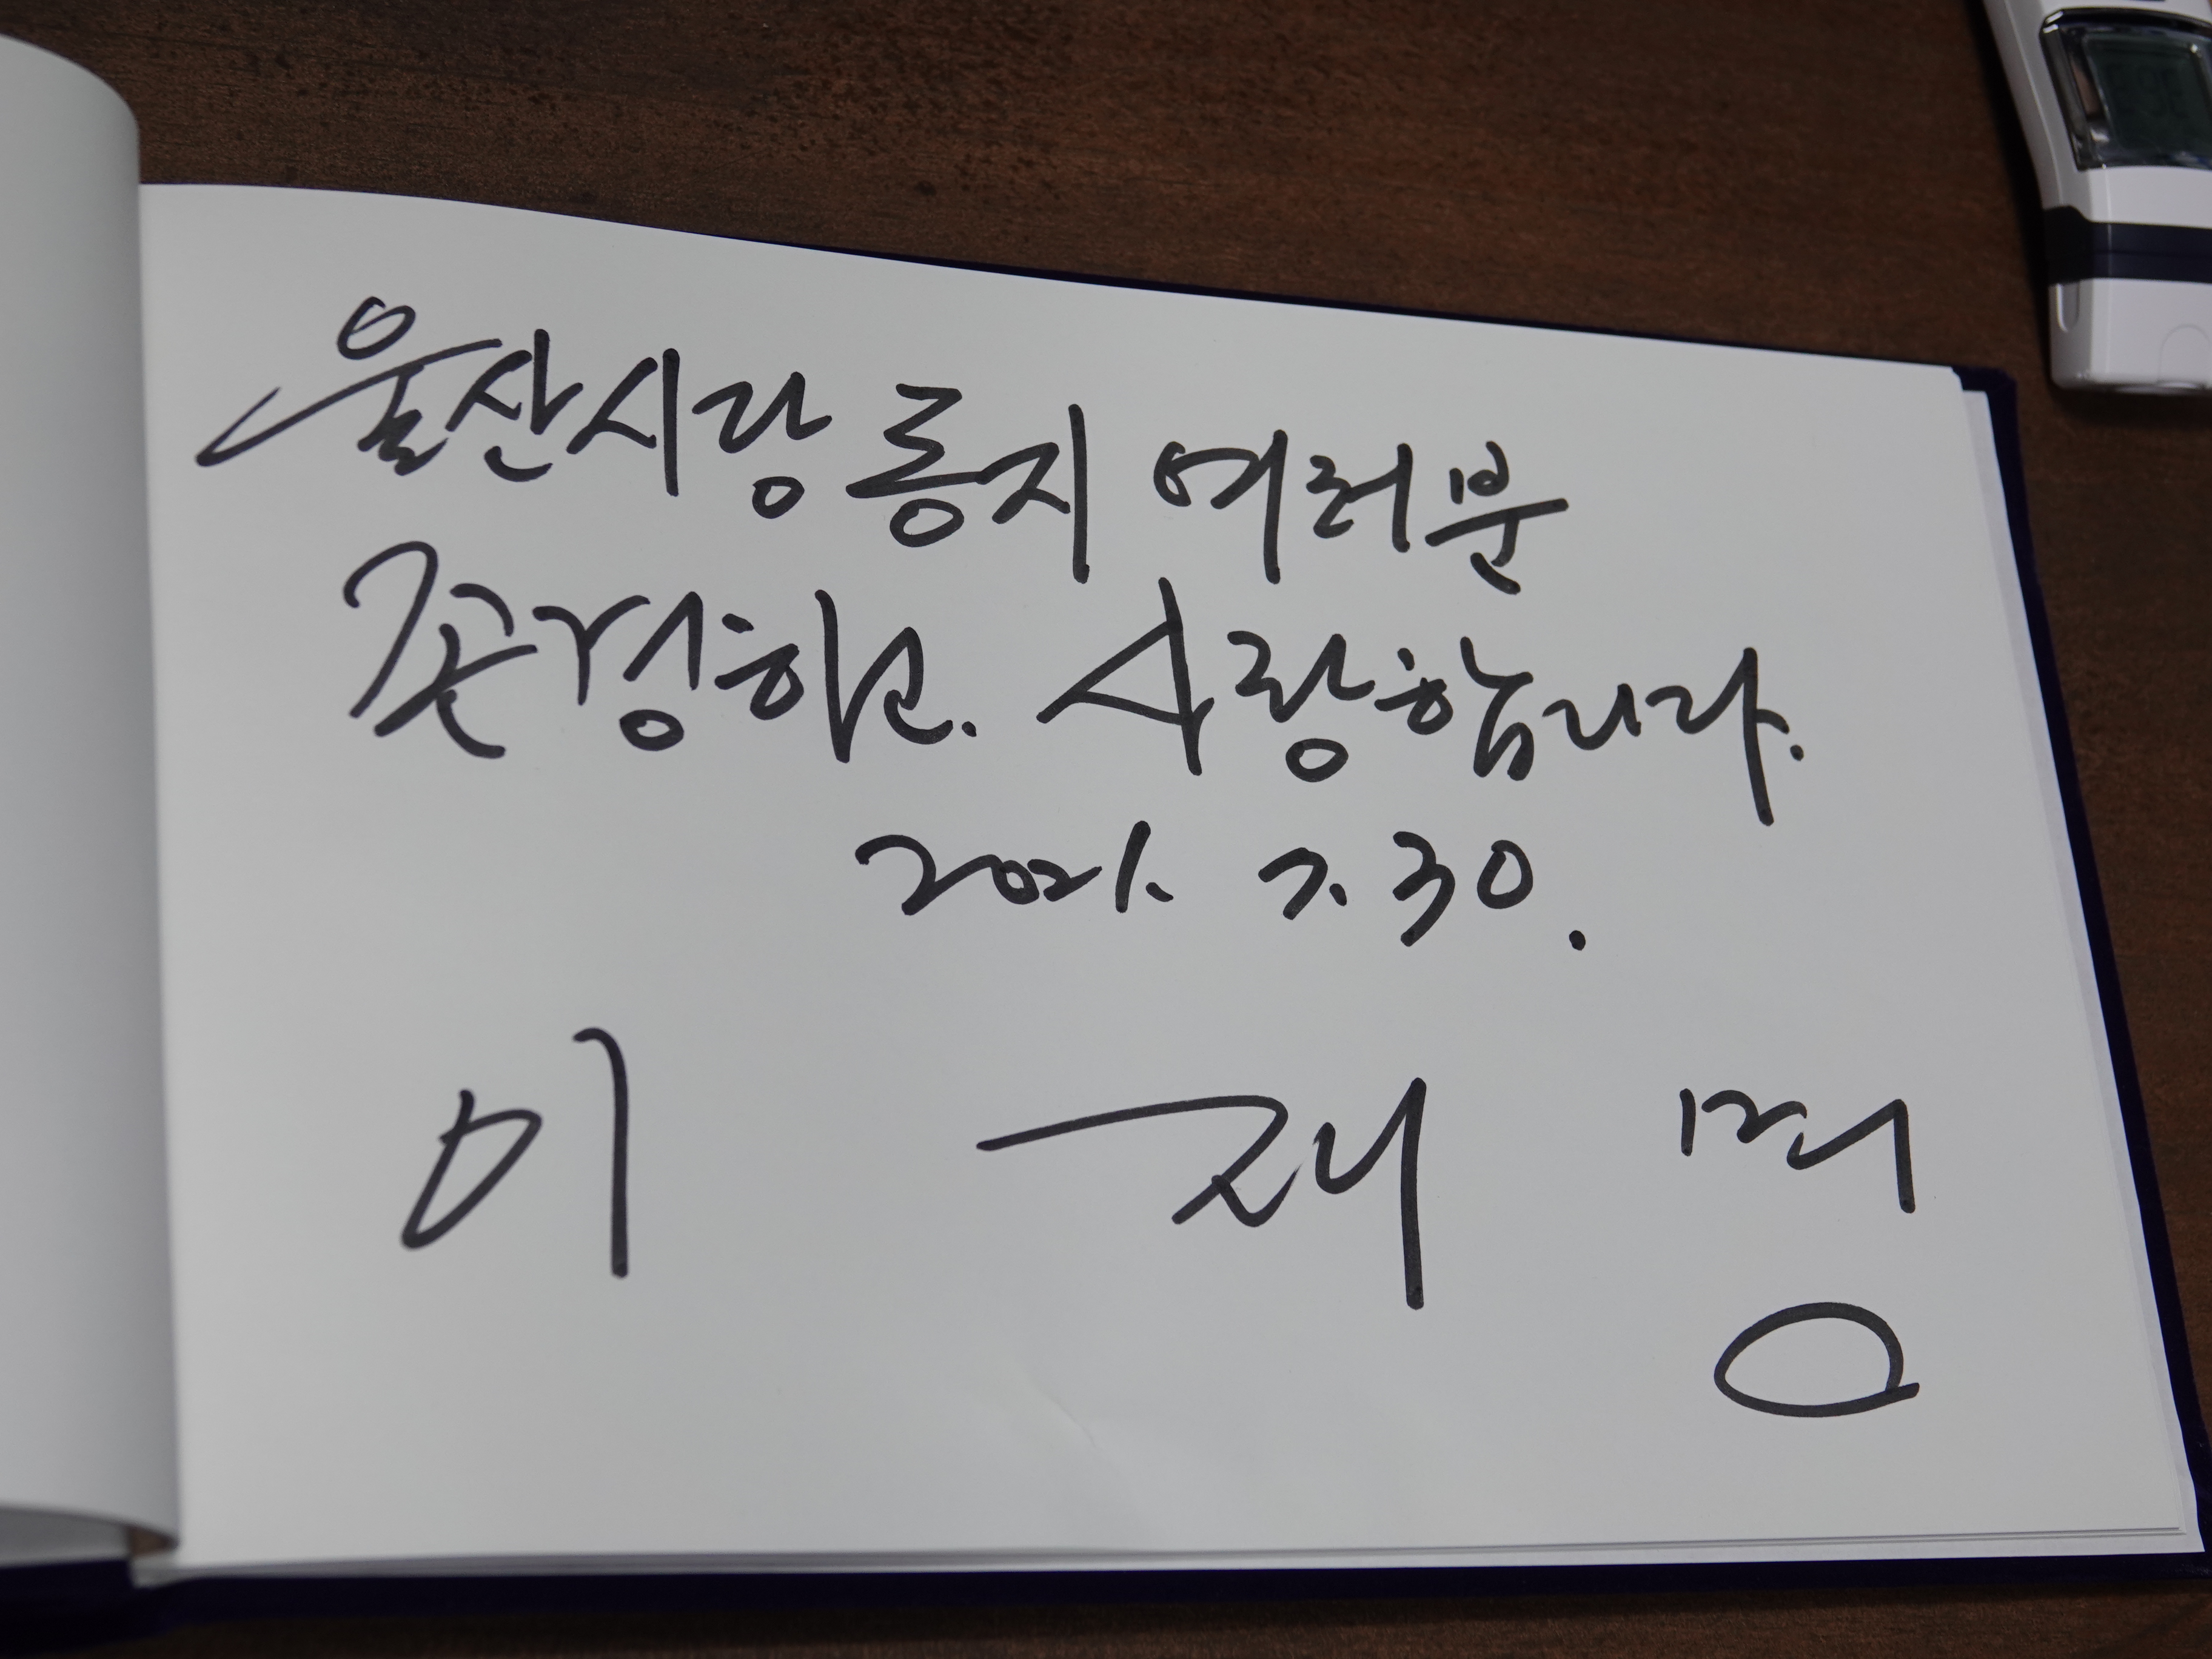 울산시당 동지 여러분
존경하고. 사랑합니다.
2021. 7. 30.
이 재 명